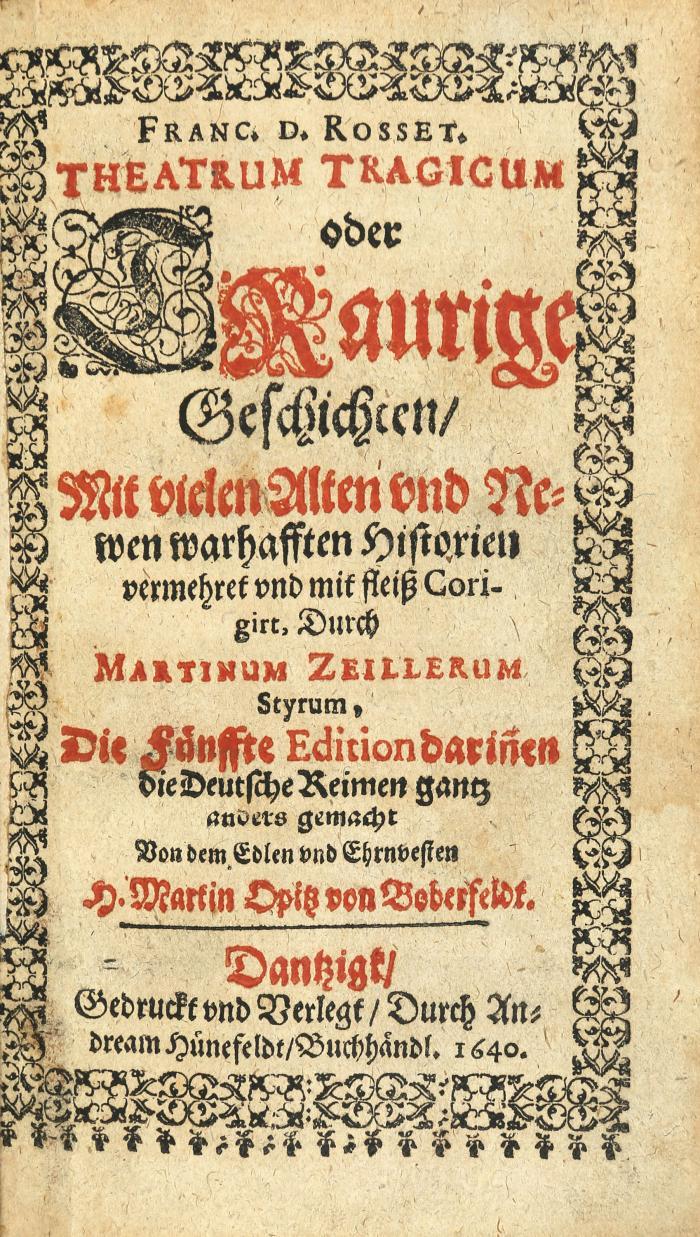 FRANC. D. ROSSET.
THEATRUM TRAGICUM
oder
TRaurige
Geschichten/
Mit vielen Alten vnd Ne=
wen warhafften Historien
vermehret vnd mit fleiß Cori-
girt, Durch
MARTINUM ZEILLERUM
Styrum,
Die Fünffte Edition dariñen
die Deutsche Reimen gantz
anders gemacht
Von dem Edlen vnd Ehrnvesten
H. Martin Opitz von Boberfeldt.
Dantzigk/
Gedruckt vnd Verlegt / Durch An=
dream Hünefeldt/Buchhändl. 1640.